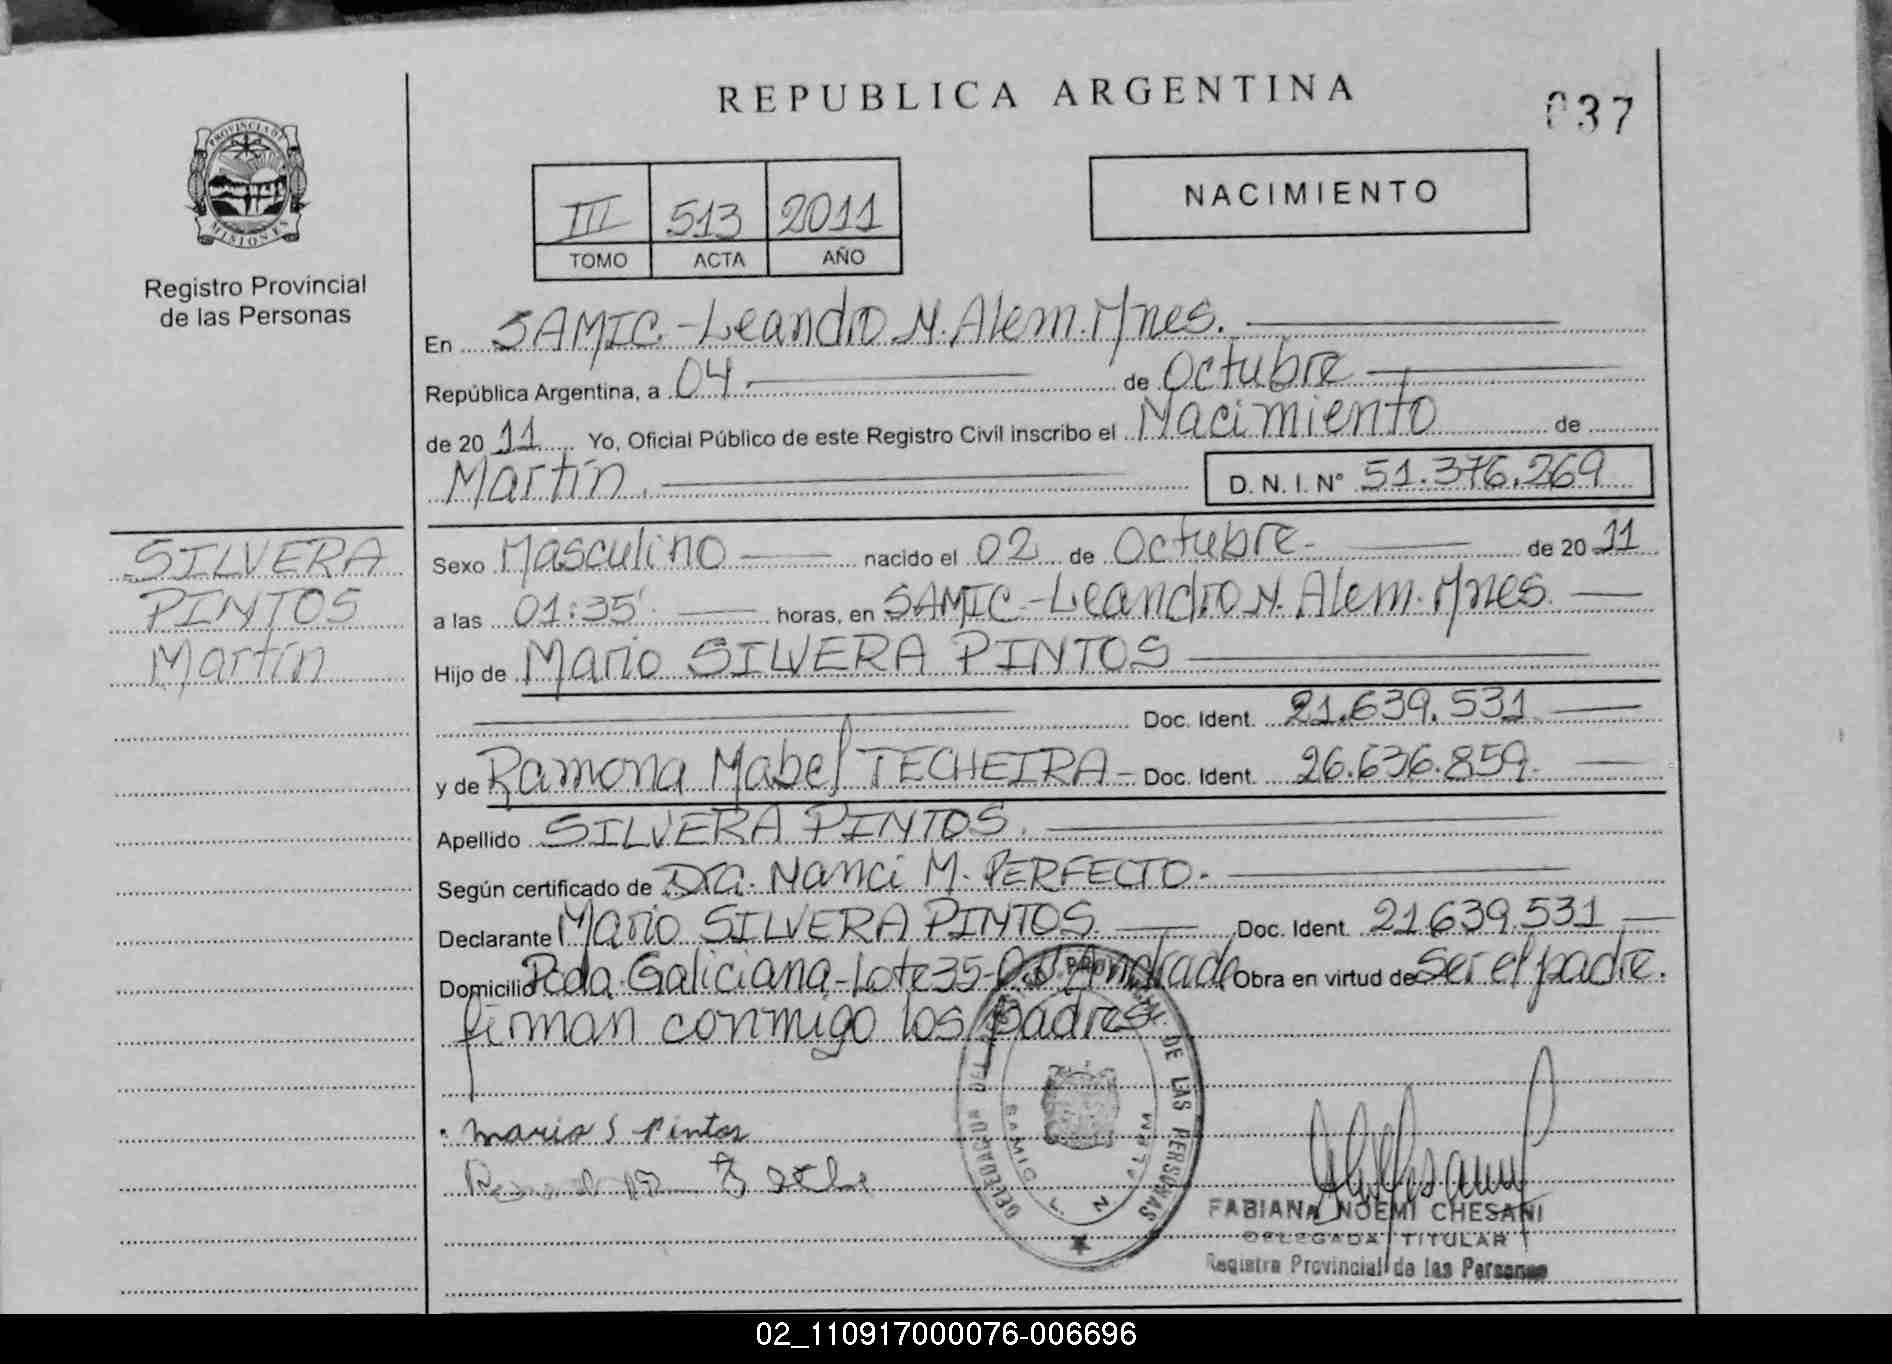 REPUBLICA ARGENTINA
037
PROVINCIA DE
MISIONES
Registro Provincial
de las Personas
NACIMIENTO
III 513 2011
TOMO ACTA AÑO
En SAMIC.-Leandro N. Alem. Mnes.
República Argentina, a 04. de Octubre
de 20 11 Yo, Oficial Público de este Registro Civil inscribo el Nacimiento de
Martín. D. N. I. N° 51.376.269
SILVERA
PINTOS
Martín
Sexo Masculino nacido el 02 de Octubre. de 20 11
a las 01:35'. horas, en SAMIC.-Leandro N. Alem. Mnes.
Hijo de Mario SILVERA PINTOS
Doc. Ident. 21.639.531
y de Ramona Mabel TECHEIRA - Doc. Ident. 26.636.859.
Apellido SILVERA PINTOS.
Según certificado de Dra. Nanci M. PERFECTO.
Declarante Mario SILVERA PINTOS. Doc. Ident. 21.639.531
Domicilio Pcda. Galiciana-Lote 35- Andrade Obra en virtud de Ser el padre.
firman conmigo los padres.
DE LAS PERSONAS
DELEGACION
SAMIC L. N. ALEM
mario S Pintos
FABIANA NOEMI CHESANI
DELEGADA TITULAR
Registro Provincial de las Personas
02_110917000076-006696